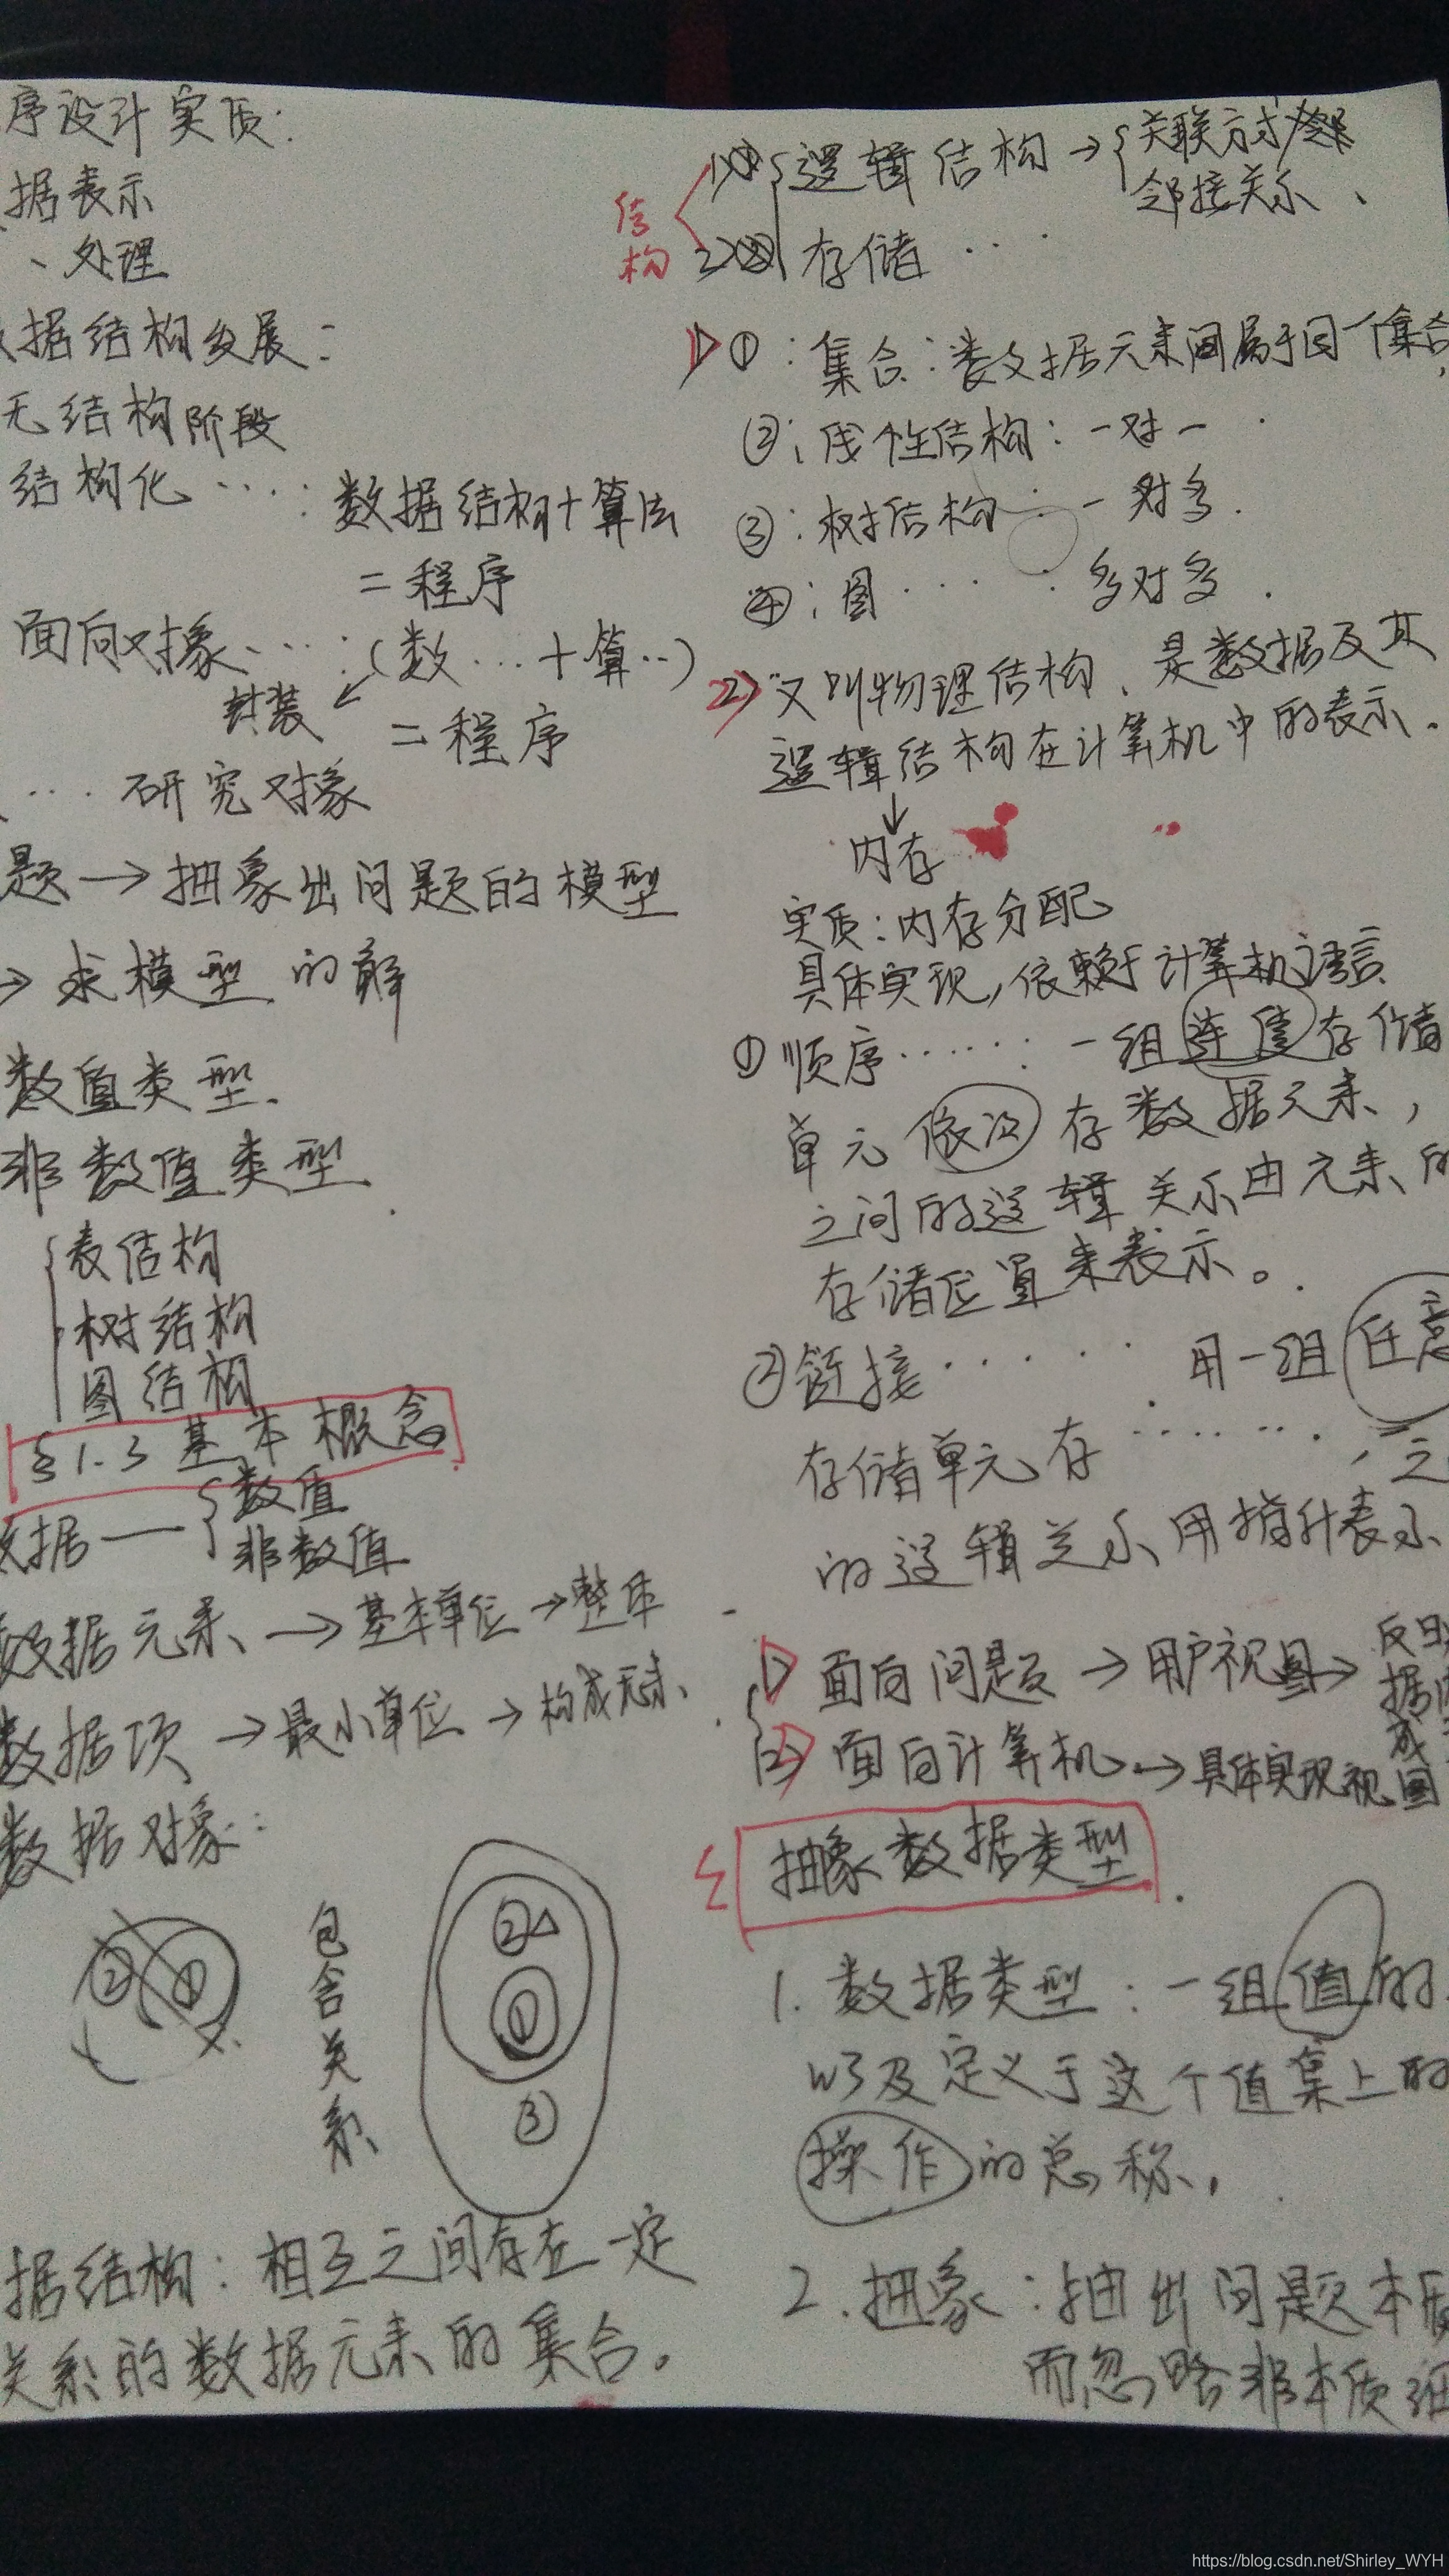 序设计实质：
据表示
、处理
据结构发展：
无结构阶段
结构化····：数据结构+算法
=程序
面向对象····：（数…+算··）
封装
=程序
····研究对象
题→抽象出问题的模型
→求模型的解
数值类型.
非数值类型.
表结构
树结构
图结构
§1.3基本概念
据—{数值
非数值
数据元素→基本单位→整体
数据项→最小单位→构成元素
数据对象：
② ①
包含关系
②△
①
③
据结构：相互之间存在一定
关系的数据元素的集合。
结构
1) 逻辑结构→{关联方式
邻接关系、
2) 存储···
1) ①：集合：数据元素间属于同一个集合，
②：线性结构：一对一.
③：树结构：一对多.
④：图····多对多.
2) 又叫物理结构、是数据及其
逻辑结构在计算机中的表示.
↓
内存
实质：内存分配
具体实现，依赖于计算机语言
①顺序······：一组连续存储
单元依次存数据元素，
之间的逻辑关系由元素的
存储位置来表示。
②链接······用一组任意
存储单元存·······，之
的逻辑关系用指针表示
1) 面向问题→用户视图→
反映
据
成
图
2) 面向计算机→具体实现视图
抽象数据类型.
1.数据类型：一组值的
以及定义于这个值集上的
操作的总称.
2.抽象：抽出问题本质
而忽略非本质细
https://blog.csdn.net/Shirley_WYH